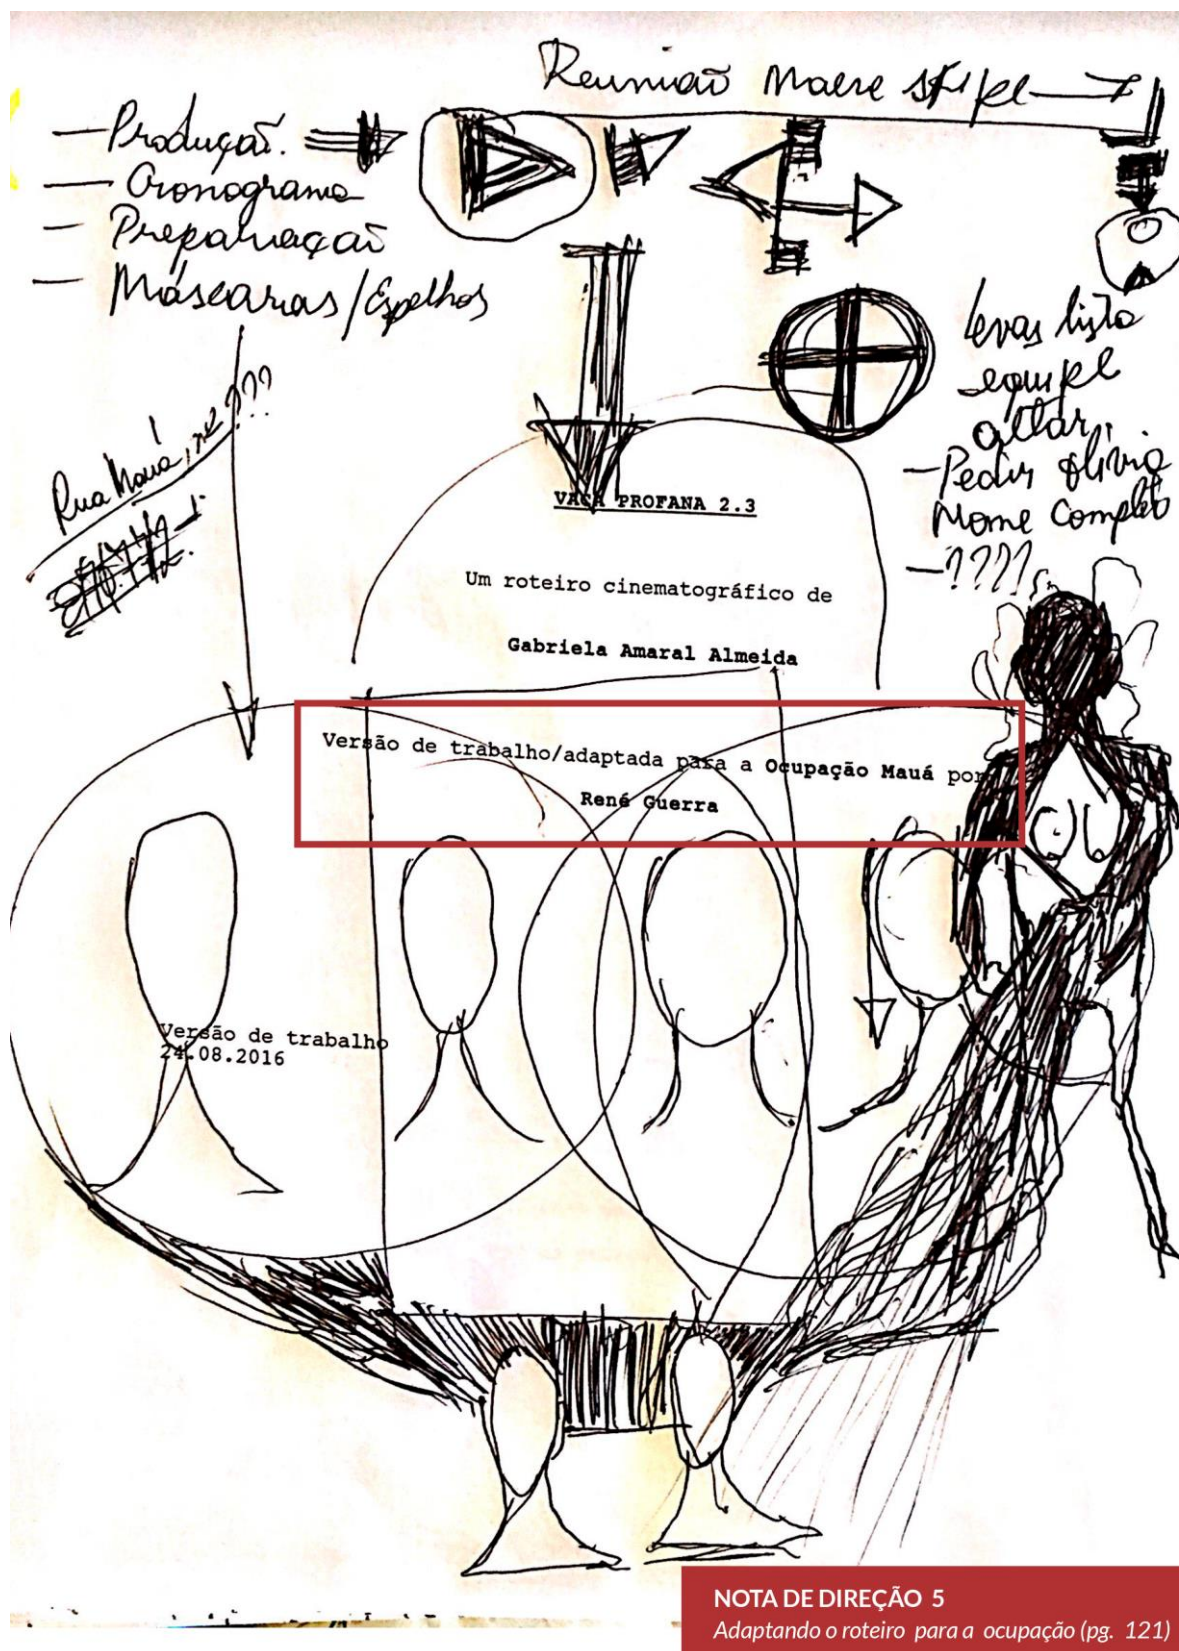 Reunião
— Produção.
— Cronograma
— Preparação
— Máscaras/Espelhos
Rua Mauá, nº ???
levar lista
equipe
- Pedir Olívia
Nome Completo
- ????
VACA PROFANA 2.3
Um roteiro cinematográfico de
Gabriela Amaral Almeida
Versão de trabalho/adaptada para a Ocupação Mauá por
René Guerra
Versão de trabalho
24.08.2016
NOTA DE DIREÇÃO 5
Adaptando o roteiro para a ocupação (pg. 121)